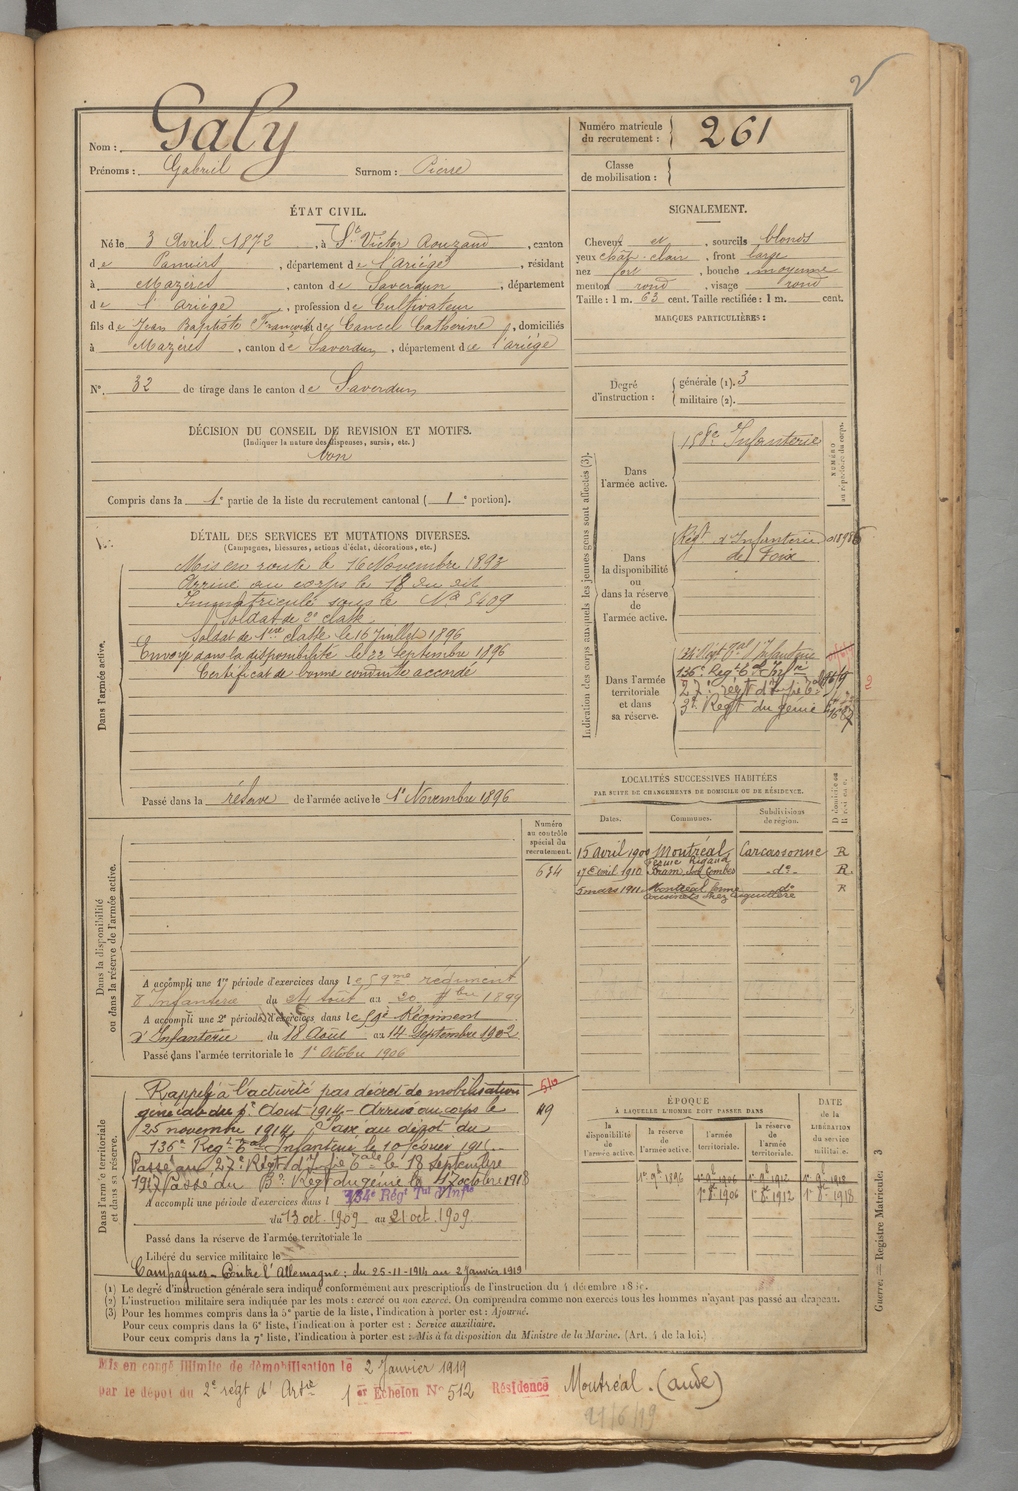 2
Nom : Galy
Prénoms : Gabriel Surnom : Pierre
Numéro matricule du recrutement : 261
Classe de mobilisation :
ÉTAT CIVIL.
Né le 3 Avril 1872, à St Victor Rouzaud, canton
de Pamiers, département de l'ariège, résidant
à Mazères, canton de Saverdun, département
de l'ariège, profession de Cultivateur
fils de Jean Baptiste François et de Cancel Catherine, domiciliés
à Mazères, canton de Saverdun, département de l'ariége
N°. 32 de tirage dans le canton de Saverdun
SIGNALEMENT.
Cheveux et, sourcils blonds
yeux chât. clair, front large
nez fort, bouche moyenne
menton rond, visage rond
Taille : 1 m. 63 cent. Taille rectifiée : 1 m. cent.
MARQUES PARTICULIÈRES :
Degré d'instruction : générale (1). 3
militaire (2).
DÉCISION DU CONSEIL DE REVISION ET MOTIFS.
(Indiquer la nature des dispenses, sursis, etc.)
bon
Compris dans la 1e partie de la liste du recrutement cantonal ( 1e portion).
DÉTAIL DES SERVICES ET MUTATIONS DIVERSES.
(Campagnes, blessures, actions d'éclat, décorations, etc.)
Dans l'armée active.
Mis en route le 16 Novembre 1893
Arrivé au corps le 18 du dit
Immatriculé sous le No 5409
Soldat de 2e classe
Soldat de 1ere classe le 16 Juillet 1896
Envoyé dans la disponibilité le 22 Septembre 1896
Certificat de bonne conduite accordé
Passé dans la réserve de l'armée active le 1er Novembre 1896
Indication des corps auxquels les jeunes gens sont affectés (3).
NUMÉRO au répertoire du corps.
Dans l'armée active.
158e Infanterie
Dans la disponibilité ou dans la réserve de l'armée active.
Régt d'Infanterie 01898
de Foix
Dans l'armée territoriale et dans sa réserve.
134 Régt Tal d'Infanterie
136e Regt Tal Infrie
27e régt d'Infie Tale
3e Regt du génie
2
Dans la disponibilité ou dans la réserve de l'armée active.
Numéro au contrôle spécial du recrutement.
634
A accompli une 1re période d'exercices dans le 59me régiment
d'Infanterie du 24 août au 20 7bre 1899
A accompli une 2e période d'exercices dans le 59e Régiment
d'Infanterie du 18 Août au 14 Septembre 1902
Passé dans l'armée territoriale le 1er Octobre 1906
LOCALITÉS SUCCESSIVES HABITÉES
PAR SUITE DE CHANGEMENTS DE DOMICILE OU DE RÉSIDENCE.
Dates. Communes. Subdivisions de région. D domicile ou R résidence.
15 Avril 1900 Montréal Carcassonne R
ferme Rigaud
17 Avril 1910 Bram, Combes do R
5 mars 1911 Montréal ferme do R
Dans l'armée territoriale et dans sa réserve.
510
49
Rappelé à l'activité par décret de mobilisation
générale du 1er Aout 1914 - Arrivé au corps le
25 novembre 1914. Passé au dépôt du
136e Regt Tal Infanterie le 10 février 191
Passé au 27e Régt d'Infie Tale le 18 septembre
1917 Passé du 3e Régt du génie le 17 octobre 1918
A accompli une période d'exercices dans l 134e Régt Tal d'Infie
du 13 oct. 1909 au 21 oct. 1909
Passé dans la réserve de l'armée territoriale le
Libéré du service militaire le
Campagnes - Contre l'Allemagne : du 25-11-1914 au 2 janvier 1919
ÉPOQUE
À LAQUELLE L'HOMME DOIT PASSER DANS
la disponibilité de l'armée active. la réserve de l'armée active. l'armée territoriale. la réserve de l'armée territoriale.
DATE de la LIBÉRATION du service militaire.
1er 9b 1896 1er 9b 1906 1er 9b 1912 1er 9b 1918
1er 8b 1906 1er 8b 1912 1er 8b 1918
(1) Le degré d'instruction générale sera indiqué conformément aux prescriptions de l'instruction du 4 décembre 18
(2) L'instruction militaire sera indiquée par les mots : exercé ou non exercé. On comprendra comme non exercés tous les hommes n'ayant pas passé au drapeau.
(3) Pour les hommes compris dans la 5e partie de la liste, l'indication à porter est : Ajourné.
Pour ceux compris dans la 6e liste, l'indication à porter est : Service auxiliaire.
Pour ceux compris dans la 7e liste, l'indication à porter est : Mis à la disposition du Ministre de la Marine. (Art. 4 de la loi.)
Guerre. — Registre Matricule. 3
Mis en congé illimité de démobilisation le 2 Janvier 1919
par le dépôt du 2e régt d'Artie 1er Echelon No 512 Résidence Montréal. (aude)
21/6/19